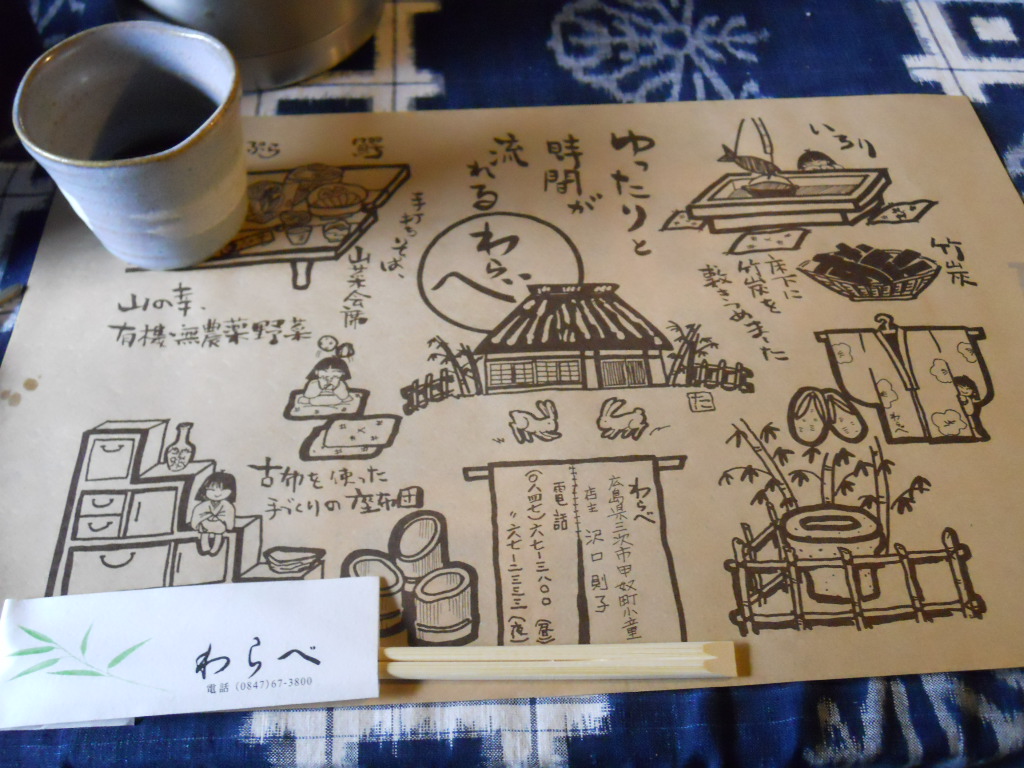 ゆったりと
時間が
流れる
わらべ
いろり
竹炭
床下に
竹炭を
敷きつめました
手打ちそば、
山菜会席
山の幸、
有機・無農薬野菜
古布を使った
手づくりの座布団
わらべ
た
わらべ
広島県三次市甲奴町小童
店主 沢口則子
電話
(〇八四七)六七-三八〇〇(昼)
〃 六七-二三三三(夜)
わらべ
電話 (0847)67-3800